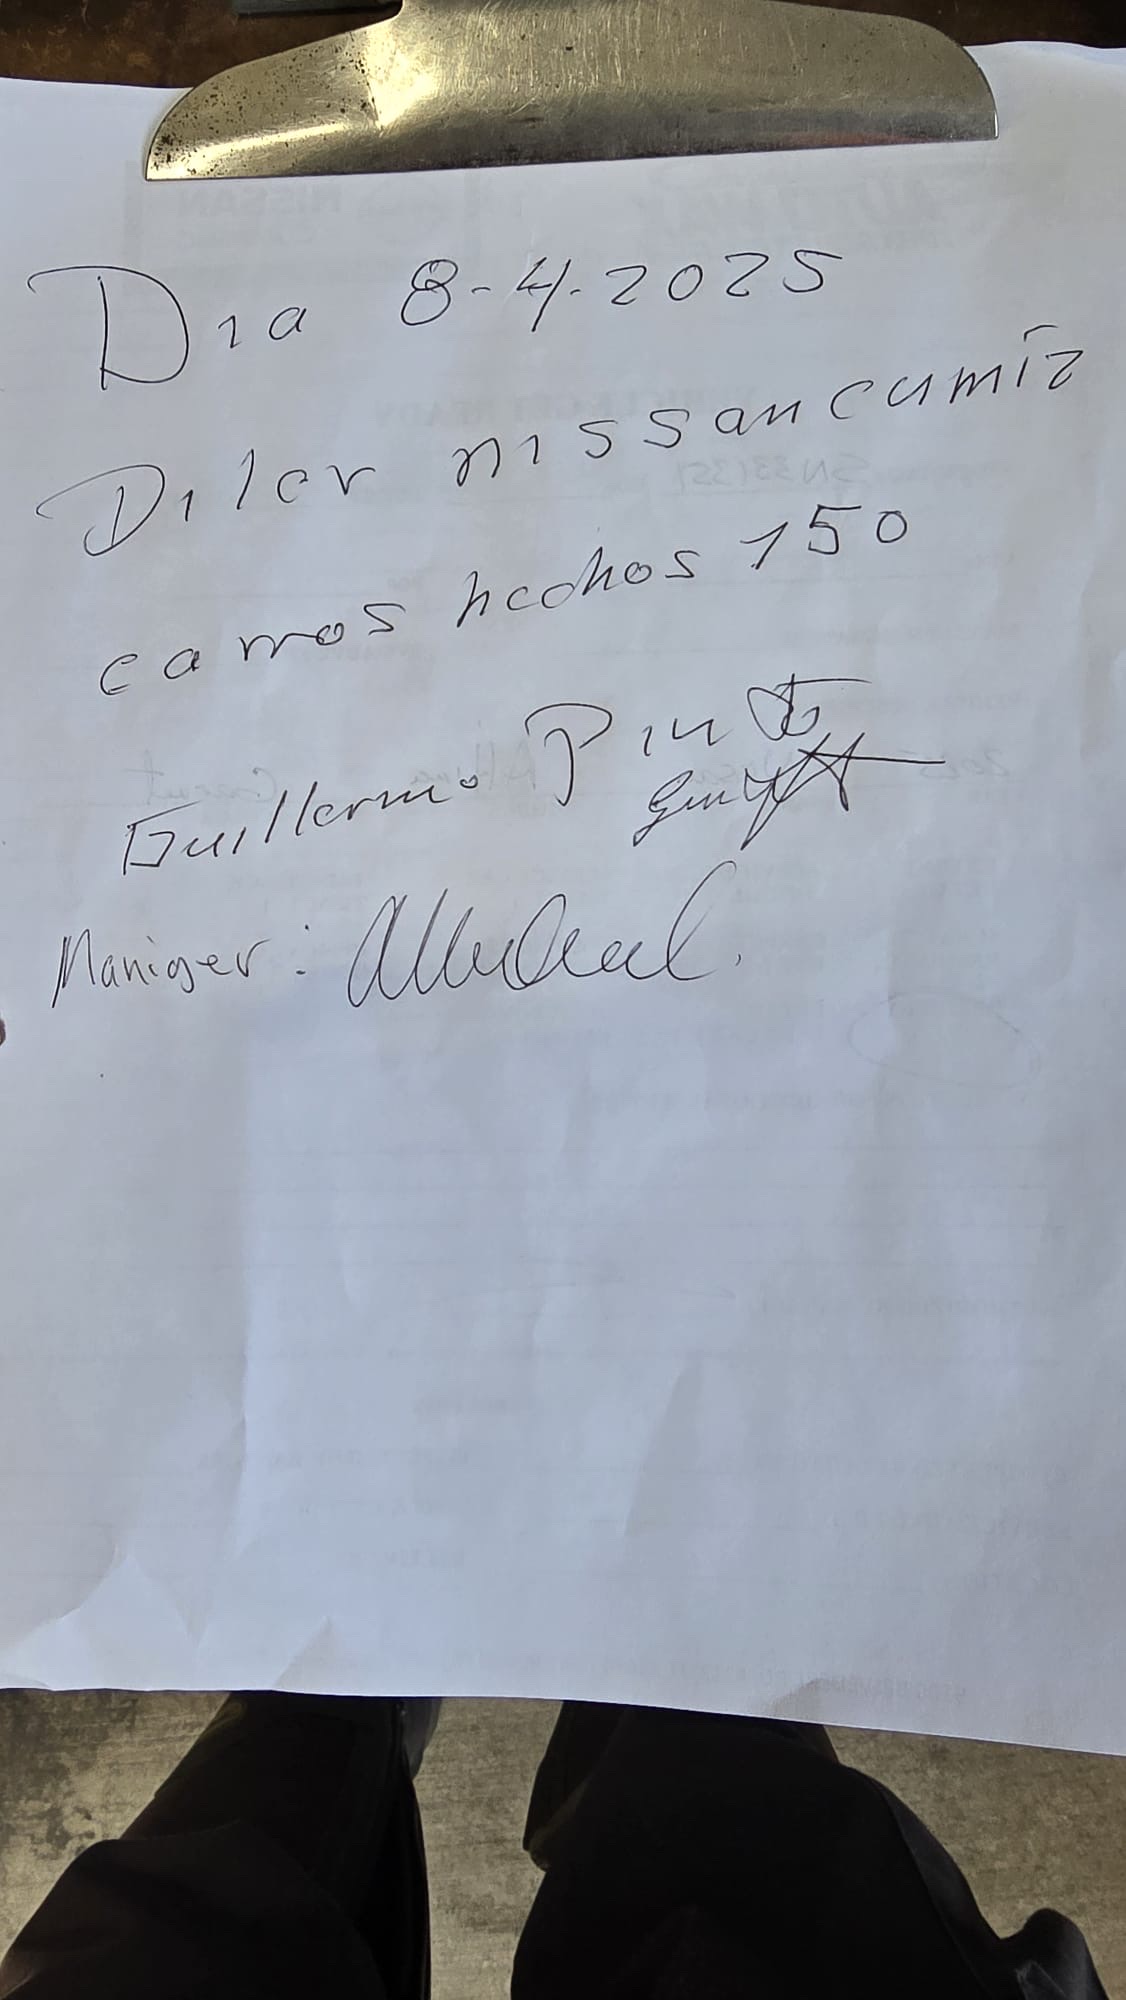 Dia 8-4-2025
Diler nissan cumiz
carros hechos 150
Guillermo Pinto
Maniger: